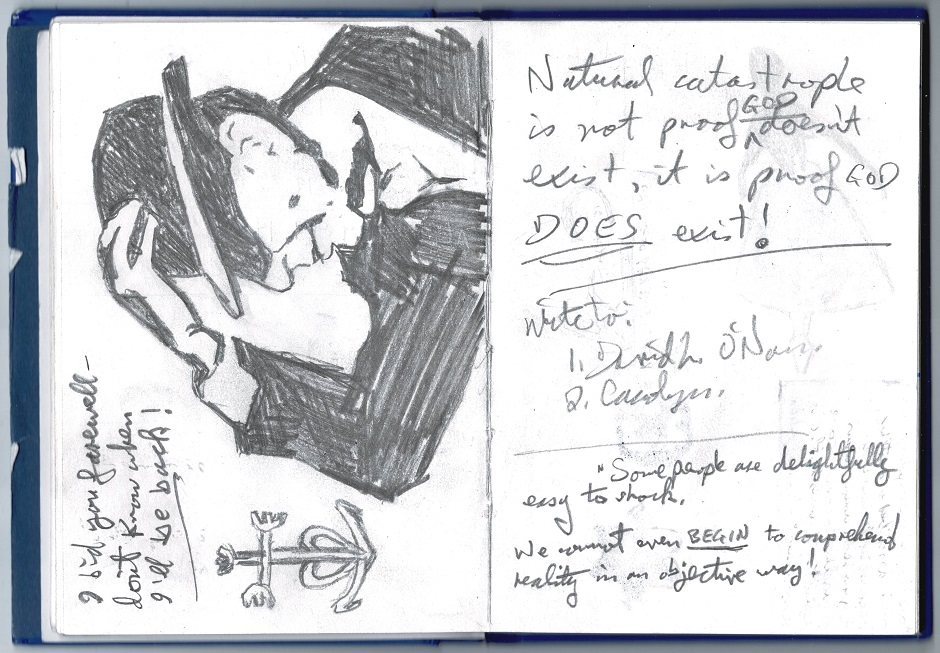 I bid you farewell –
don't know when
I'll be back!
Natural catastrophe
is not proof GOD doesn't
exist, it is proof GOD
DOES exist!
Write to:
1. David L.
2. Carolyn.
"Some people are delightfully
easy to shock.
We cannot even BEGIN to comprehend
reality in an objective way!